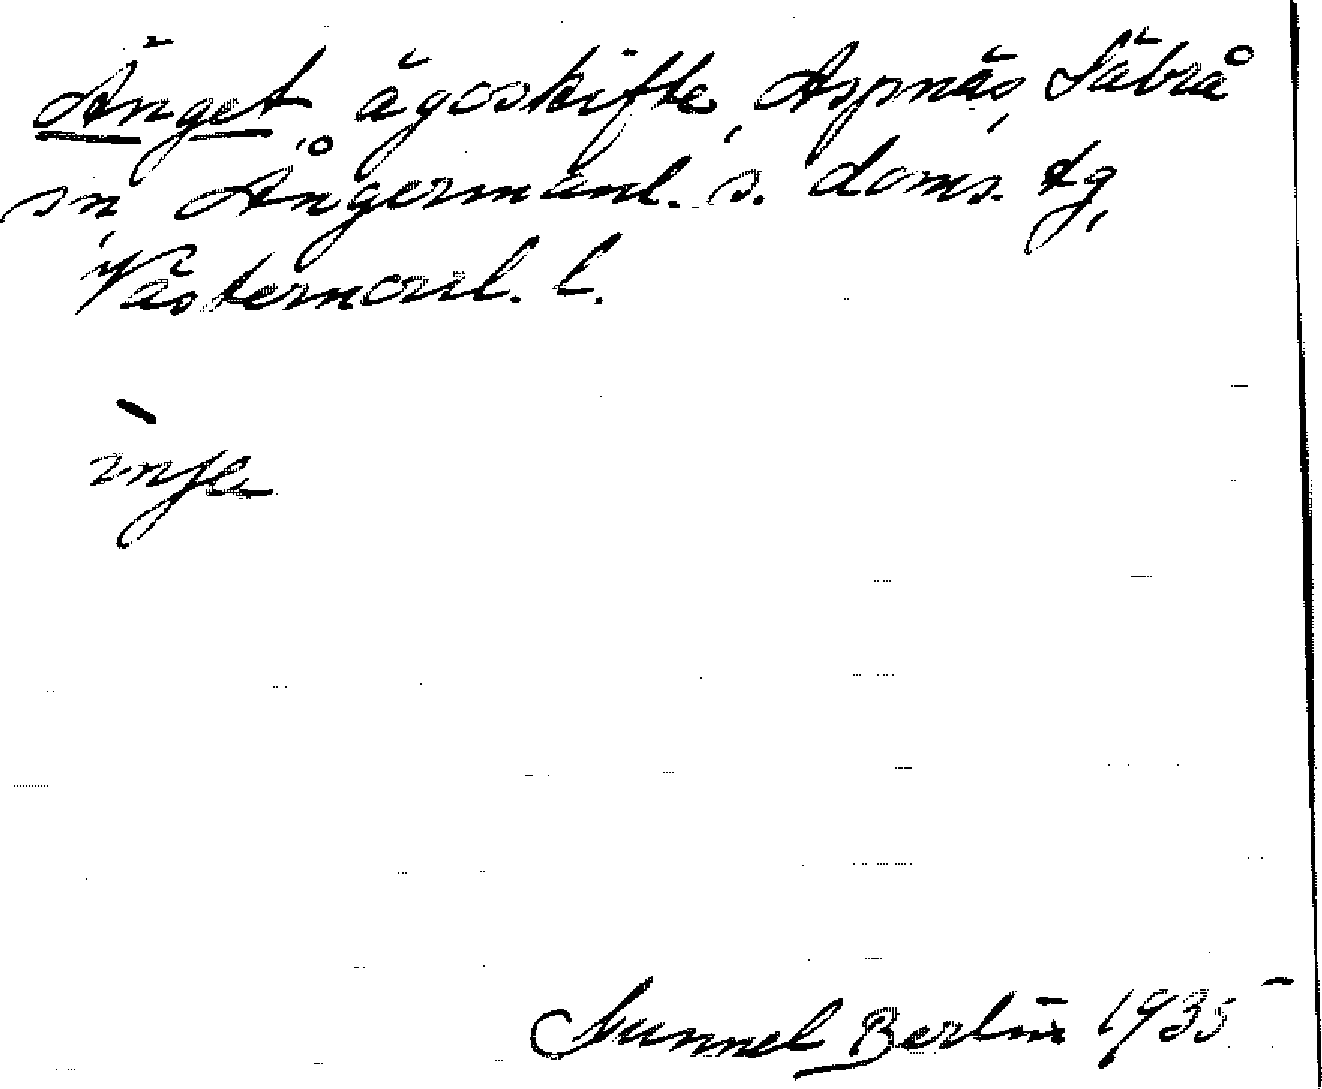 Änget, ägoskifte, Aspnäs, Säbrå
sn, Ångermanl. s. doms. tg,
Västernorrl. l.
Gunnel Berlin 1935